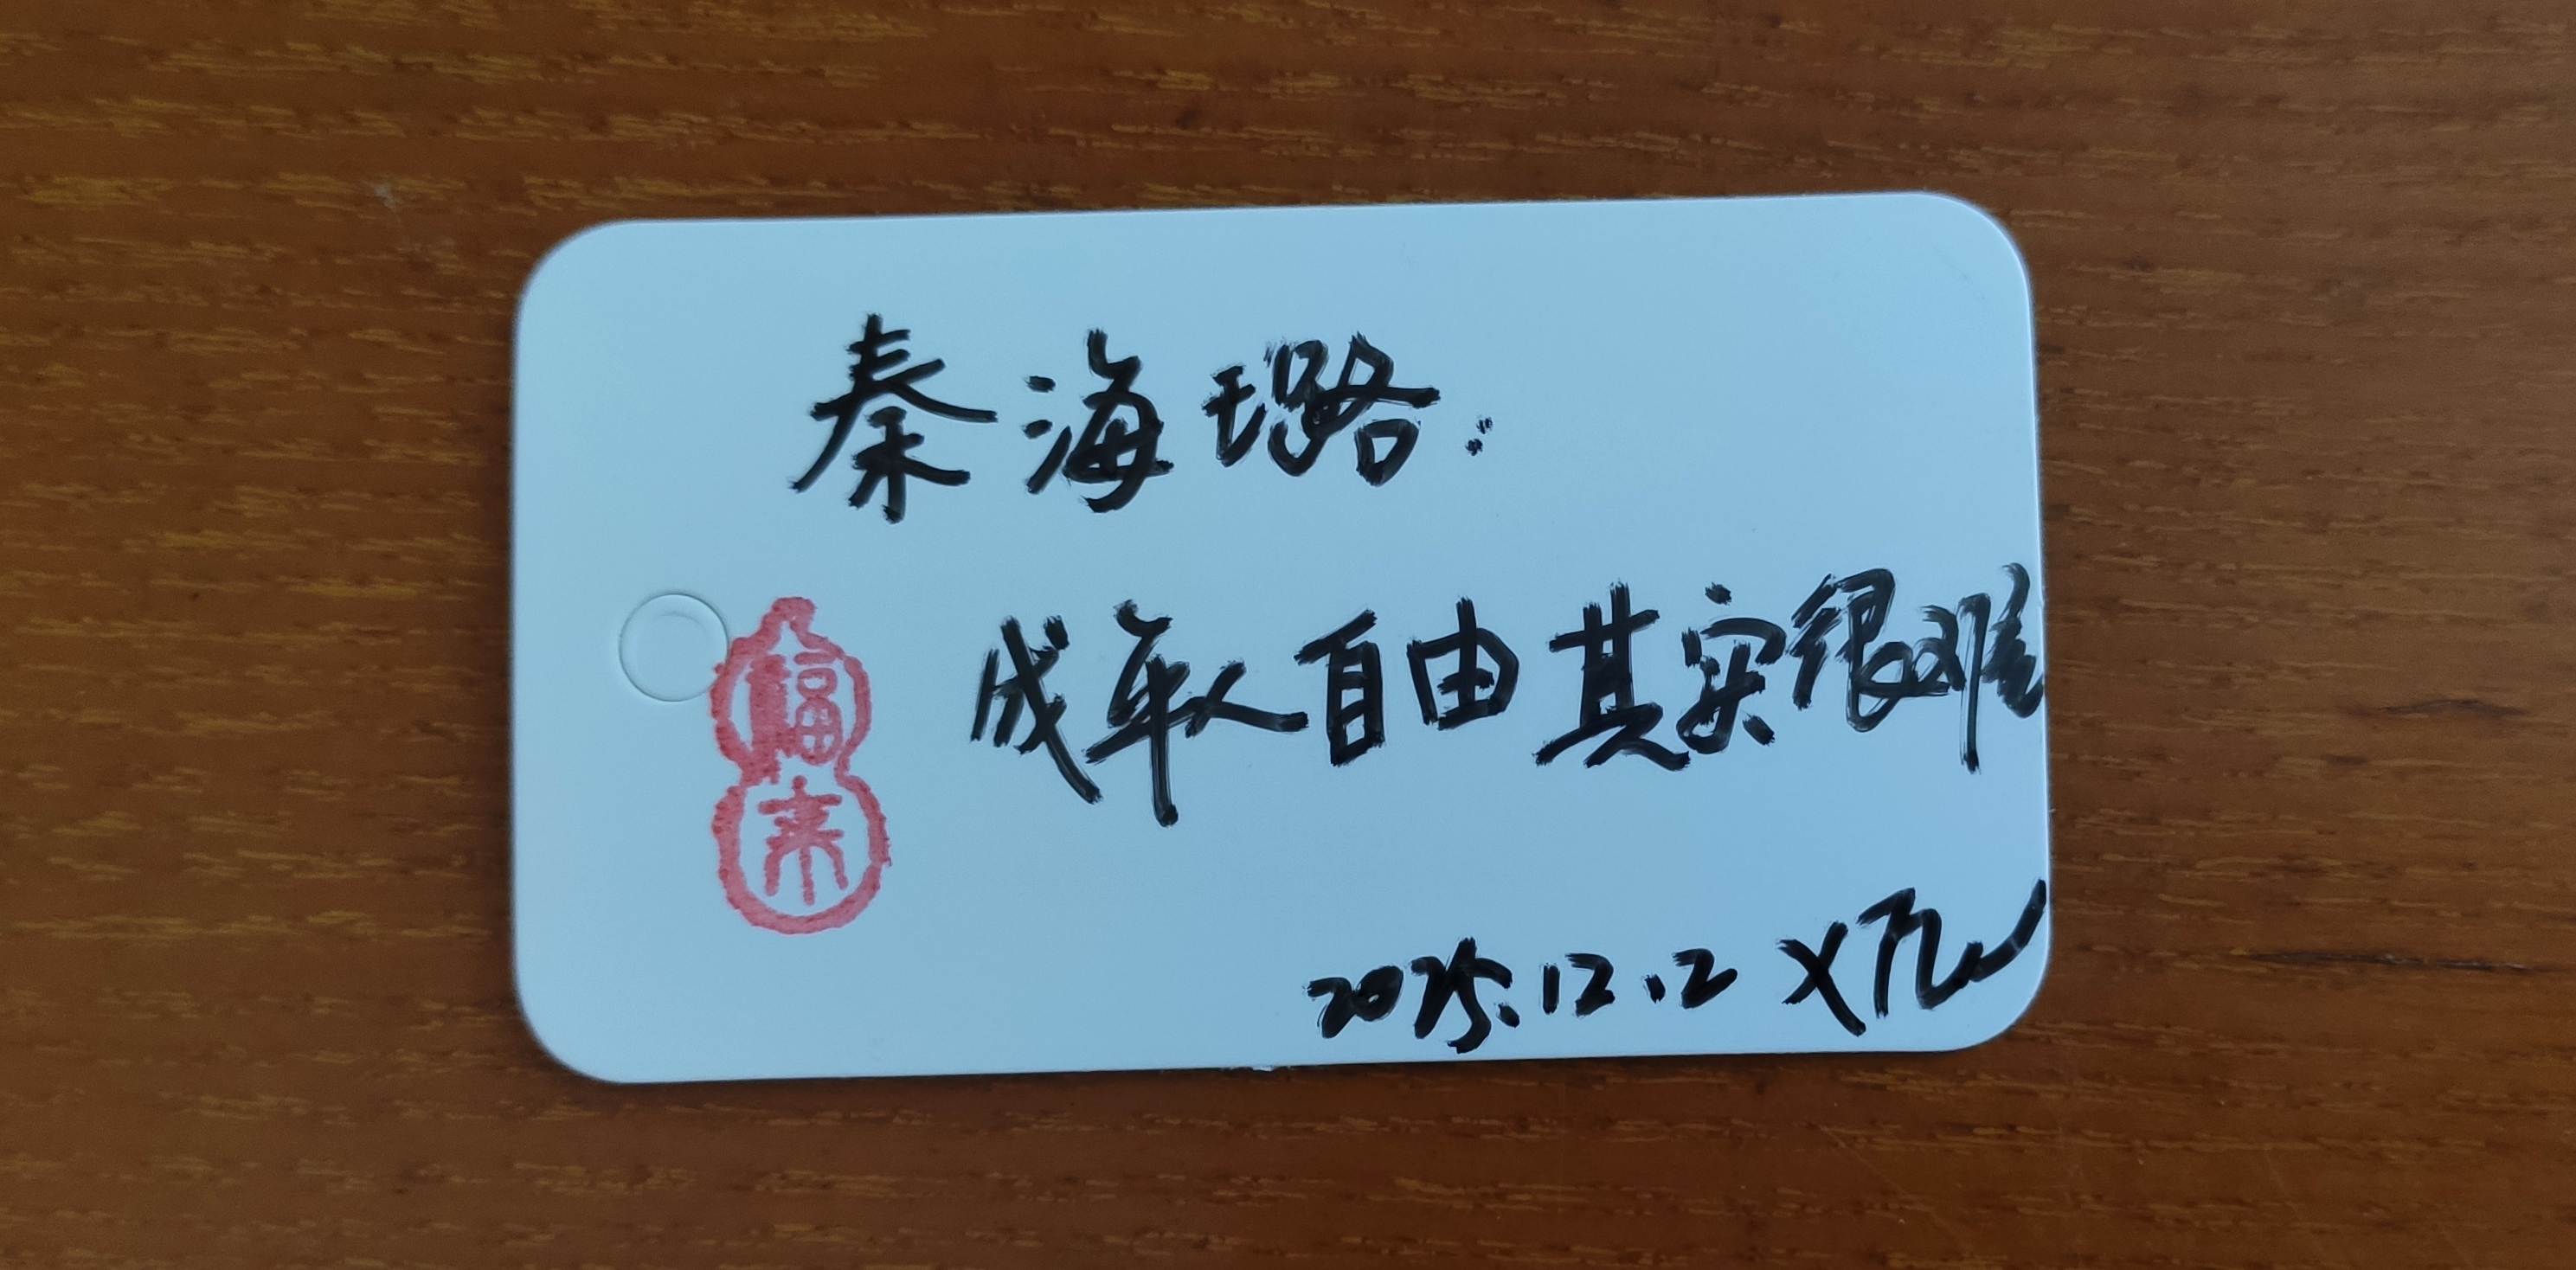 秦海璐:
成年人自由其实很难
福
来
2025.12.2